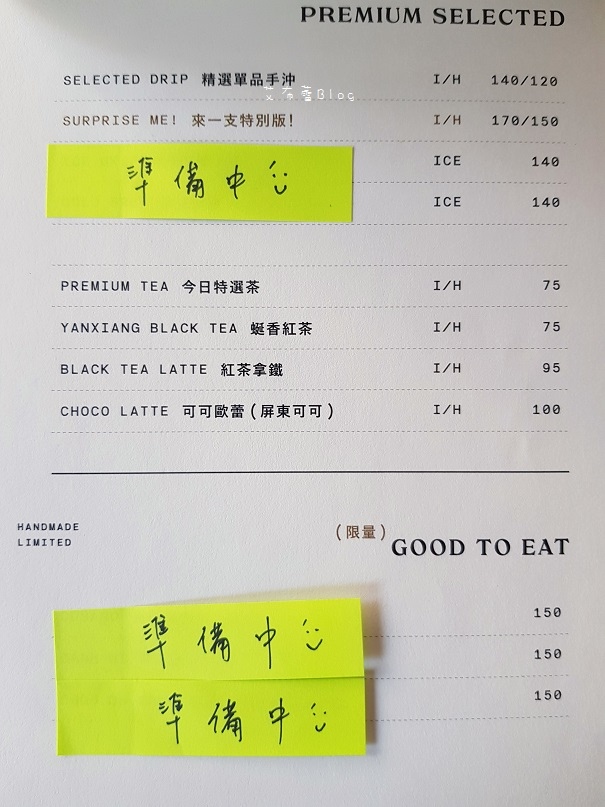 PREMIUM SELECTED
SELECTED DRIP 精選單品手沖 I/H 140/120
艾布蕾Blog
SURPRISE ME! 來一支特別版! I/H 170/150
ICE 140
準備中
ICE 140
PREMIUM TEA 今日特選茶 I/H 75
YANXIANG BLACK TEA 蜒香紅茶 I/H 75
BLACK TEA LATTE 紅茶拿鐵 I/H 95
CHOCO LATTE 可可歐蕾(屏東可可) I/H 100
HANDMADE
LIMITED
(限量) GOOD TO EAT
150
準備中
150
150
準備中